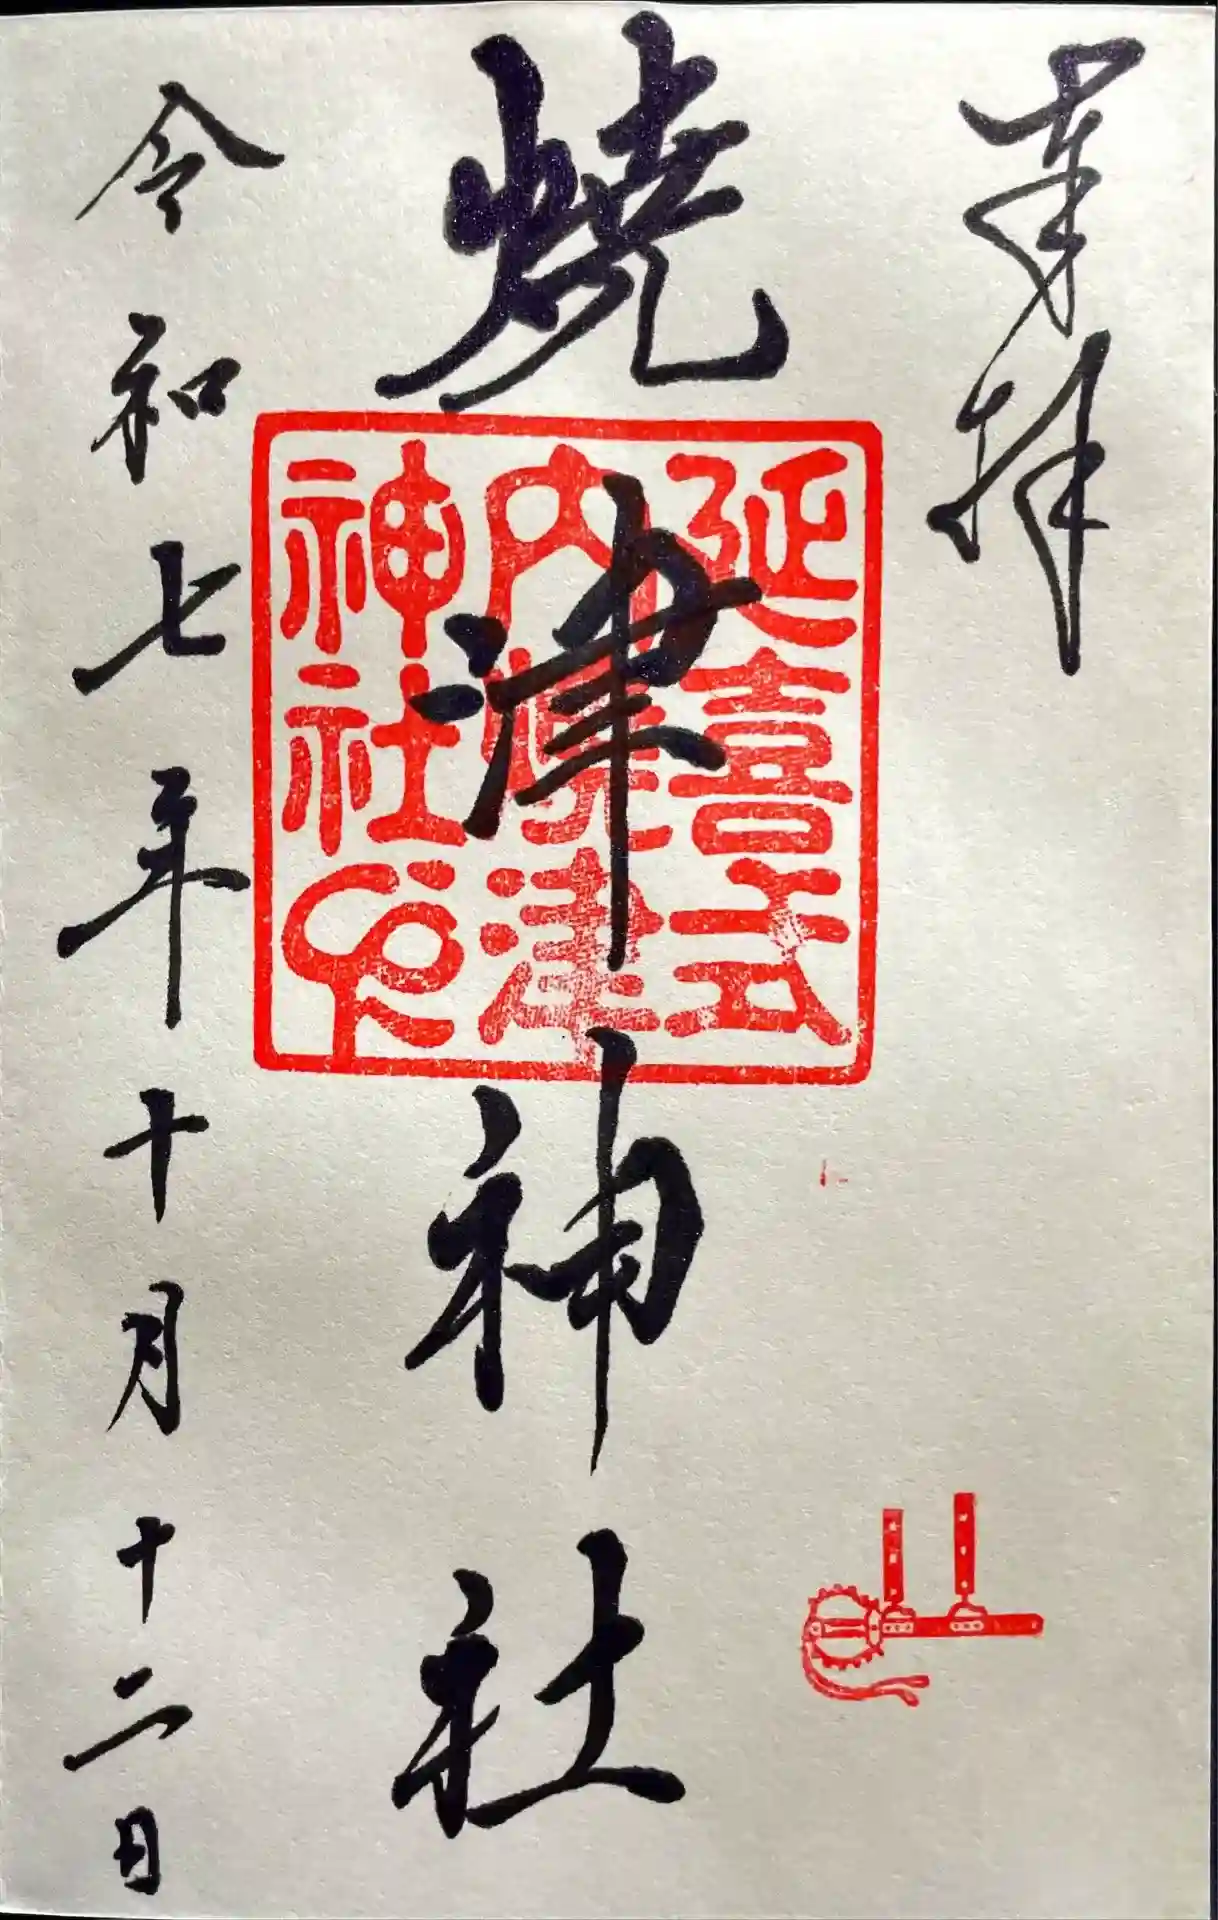 奉拝
焼津神社
延喜式
内焼津
神社印
令和七年十月十二日